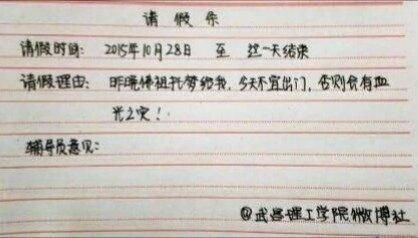 请假条
请假时间: 2015年10月28日 至 这一天结束
请假理由: 昨晚佛祖托梦给我,今天不宜出门,否则会有血
光之灾!
辅导员意见:
@武昌理工学院微博社